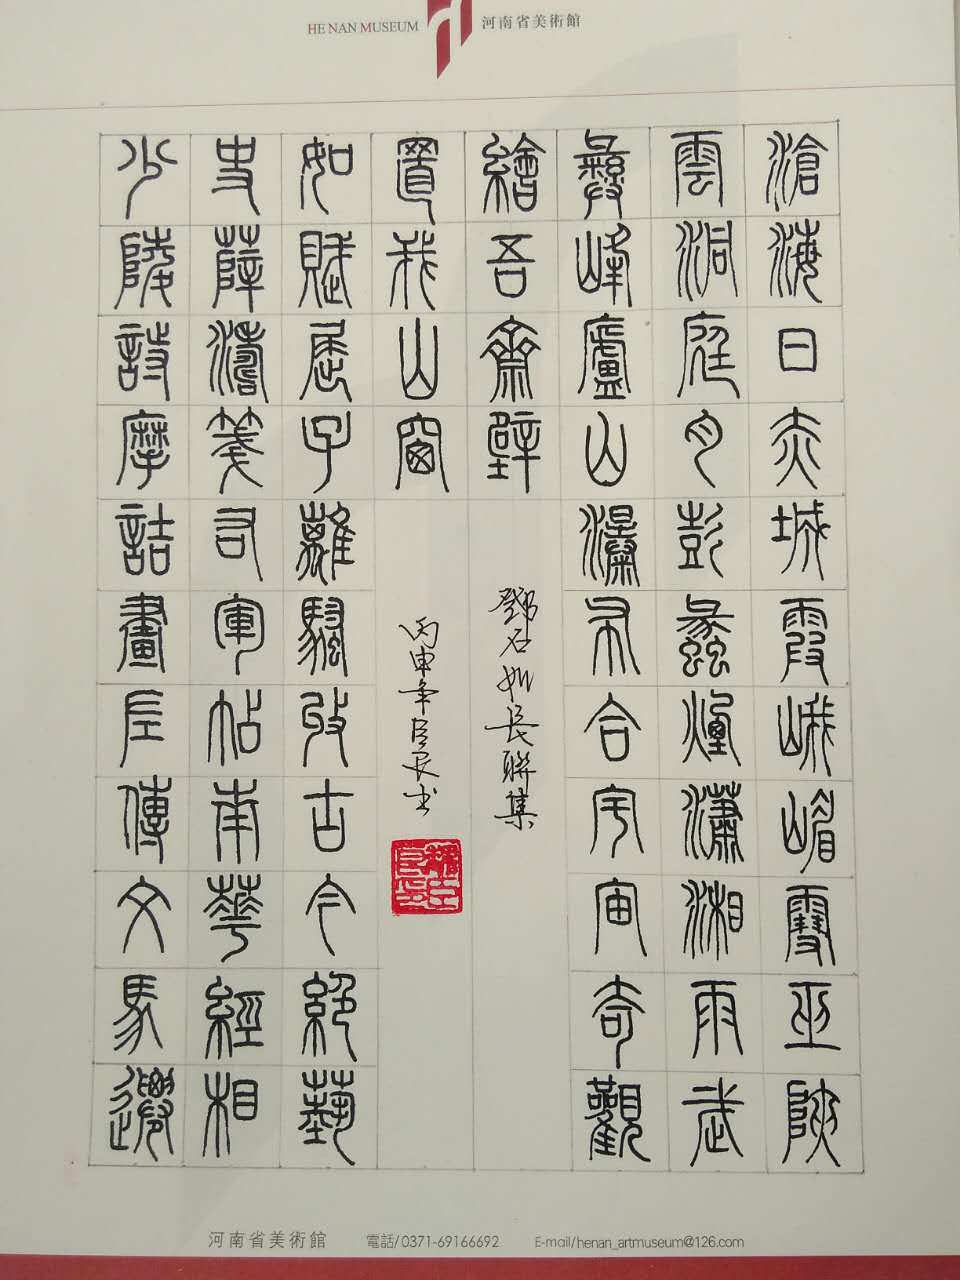 HE NAN MUSEUM
河南省美術館
滄海日赤城霞峨嵋雪巫陜
雲洞庭月彭蠡煙瀟湘雨武
彝峰廬山瀑布合宇宙奇觀
繪吾齋壁
鄧石如長聯集
少陵詩摩詰畫左傳文馬遷
史薛濤箋右軍帖南華經相
如賦屈子離騷收古今絕藝
置我山窗
丙申年臣良书
河南省美術館 電話/0371-69166692 E-mail/henan_artmuseum@126.com